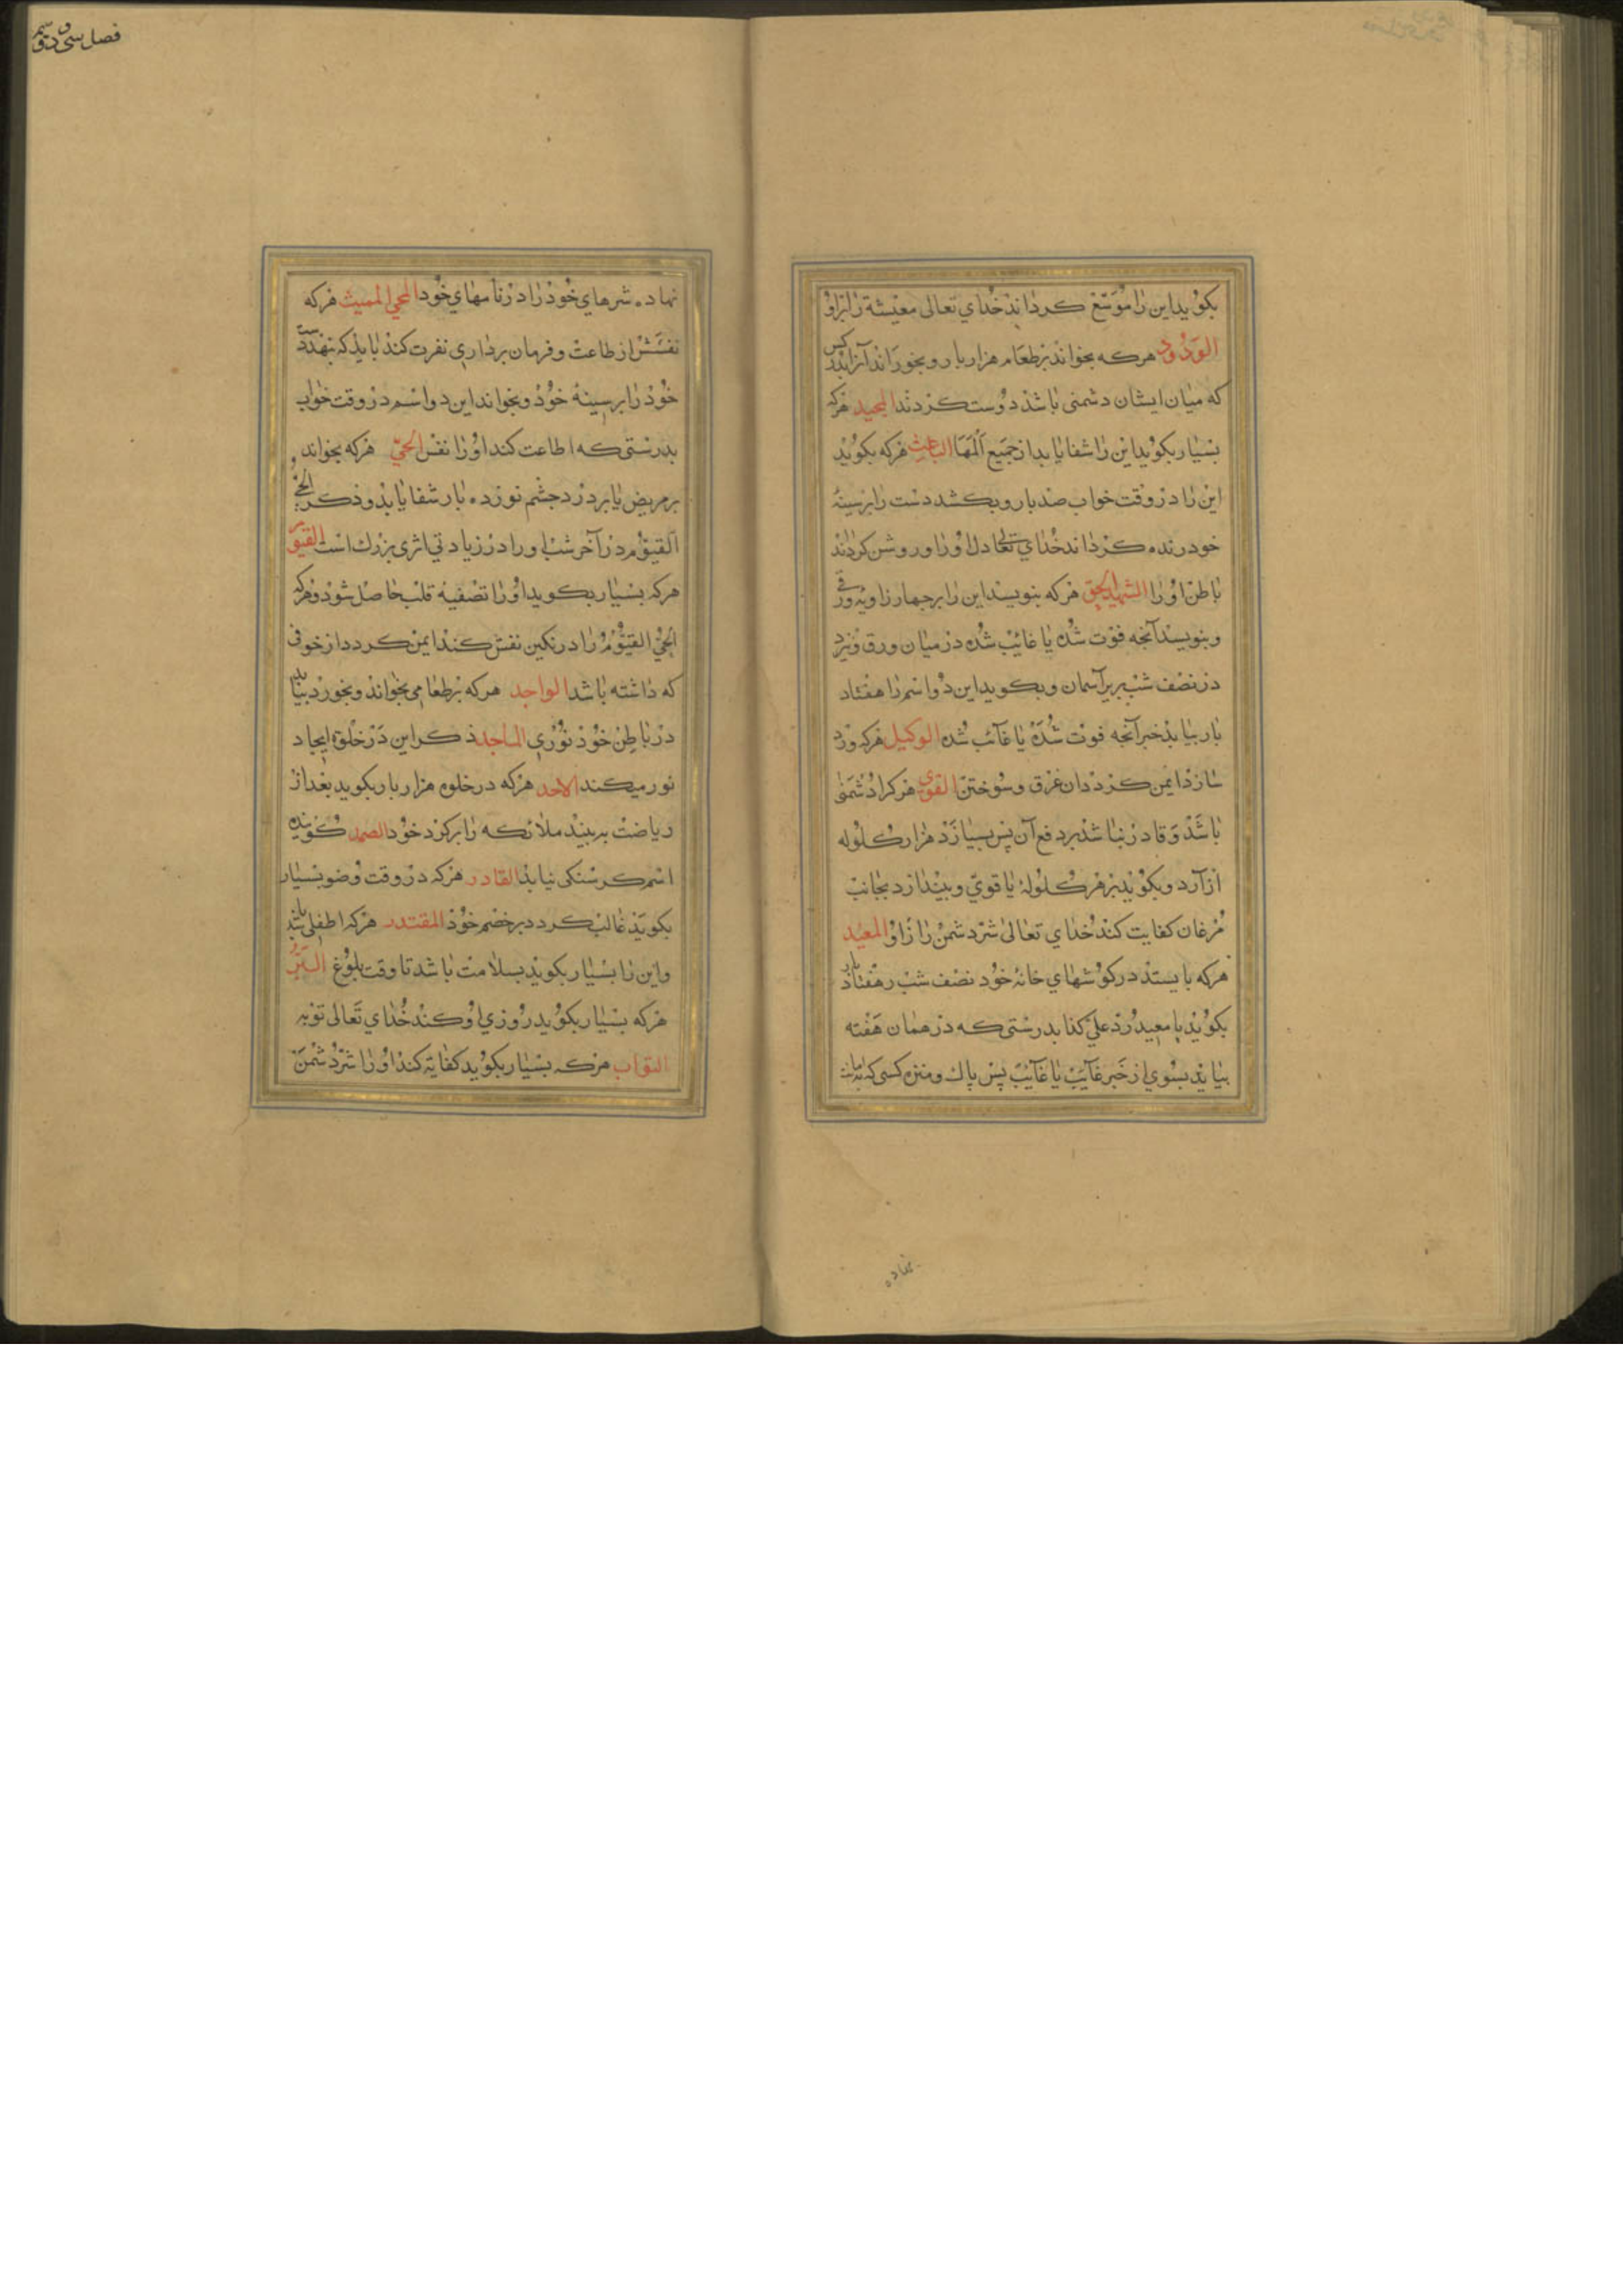 بکوید این را موسّع کرداند خدای تعالی معیشة را برو
الودود هرکه بخواند بر طعام هزار بار و بخوراند آنرا بدو کس
که میان ایشان دشمنی باشد دوست کردند المجید هرکه
بسیار بکوید این را شفا یابد از جمیع المها الباعث هرکه بکوید
این را در وقت خواب صد بار و بکشد دست را بر سینهٔ
خود زنده کرداند خدای تعالی دل او را و روشن کرداند
باطن او را الشهید الحق هرکه بنویسد این را بر چهار زاویه ورقی
و بنویسد آنچه فوت شده یا غائب شده در میان ورق و
در نصف شب زیر آسمان و بکوید این دو اسم را هفتاد
بار بیابد خبر آنچه فوت شده یا غائب شده الوکیل هرکه ورد
سازد ایمن کردد از غرق و سوختن القوی هرکرا دشمنی
باشد و قادر نباشد بر دفع آن پس بسازد هزار کلوله
از آرد و بکوید بر هر کلوله یا قوی و بیندازد بجانب
مرغان کفایت کند خدای تعالی شر دشمن را ازو المعید
هرکه بایستد در کوشهای خانهٔ خود نصف شب و هفتاد بار
بکوید یا معید رد علیّ کذا بدرستی که در همان هفته
بیاید بسوی او خبر غائب یا غائب پس پاک و منزه کسی که
نهاده
فصل سی و دویم
نهاده سرهای خود را در نامهای خود المحیی الممیت هرکه
نفسش از طاعت و فرمان برداری نفرت کند باید که بنهد دست
خود را بر سینهٔ خود و بخواند این دو اسم در وقت خواب
بدرستی که اطاعت کند او را نفس الحیّ هرکه بخواند
بر مریض یا بر درد چشم نوزده بار شفا یابد و ذکر الحی
القیوم در آخر شب او را در زیادتی اثری بزرک است القیوم
هرکه بسیار بکوید او را تصفیهٔ قلب حاصل شود و هرکه
الحی القیوم را در نکین نقش کند ایمن کردد از خوفی
که داشته باشد الواجد هرکه بر طعامی بخواند و بخورد بیابد
در باطن خود نوری الماجد ذکر این در خلوة ایجاد
نور میکند الاحد هرکه در خلوه هزار بار بکوید بعد از
ریاضت ببیند ملائکه را برکرد خود الصمد کوینده
اسم کرسنکی نیابد القادر هرکه در وقت وضو بسیار
بکوید غالب کردد بر خصم خود المقتدر هرکه را طفلی باشد
و این را بسیار بکوید بسلامت باشد تا وقت بلوغ البرّ
هرکه بسیار بکوید روزی او کند خدای تعالی توبه
التواب هرکه بسیار بکوید کفایة کند او را شر دشمن